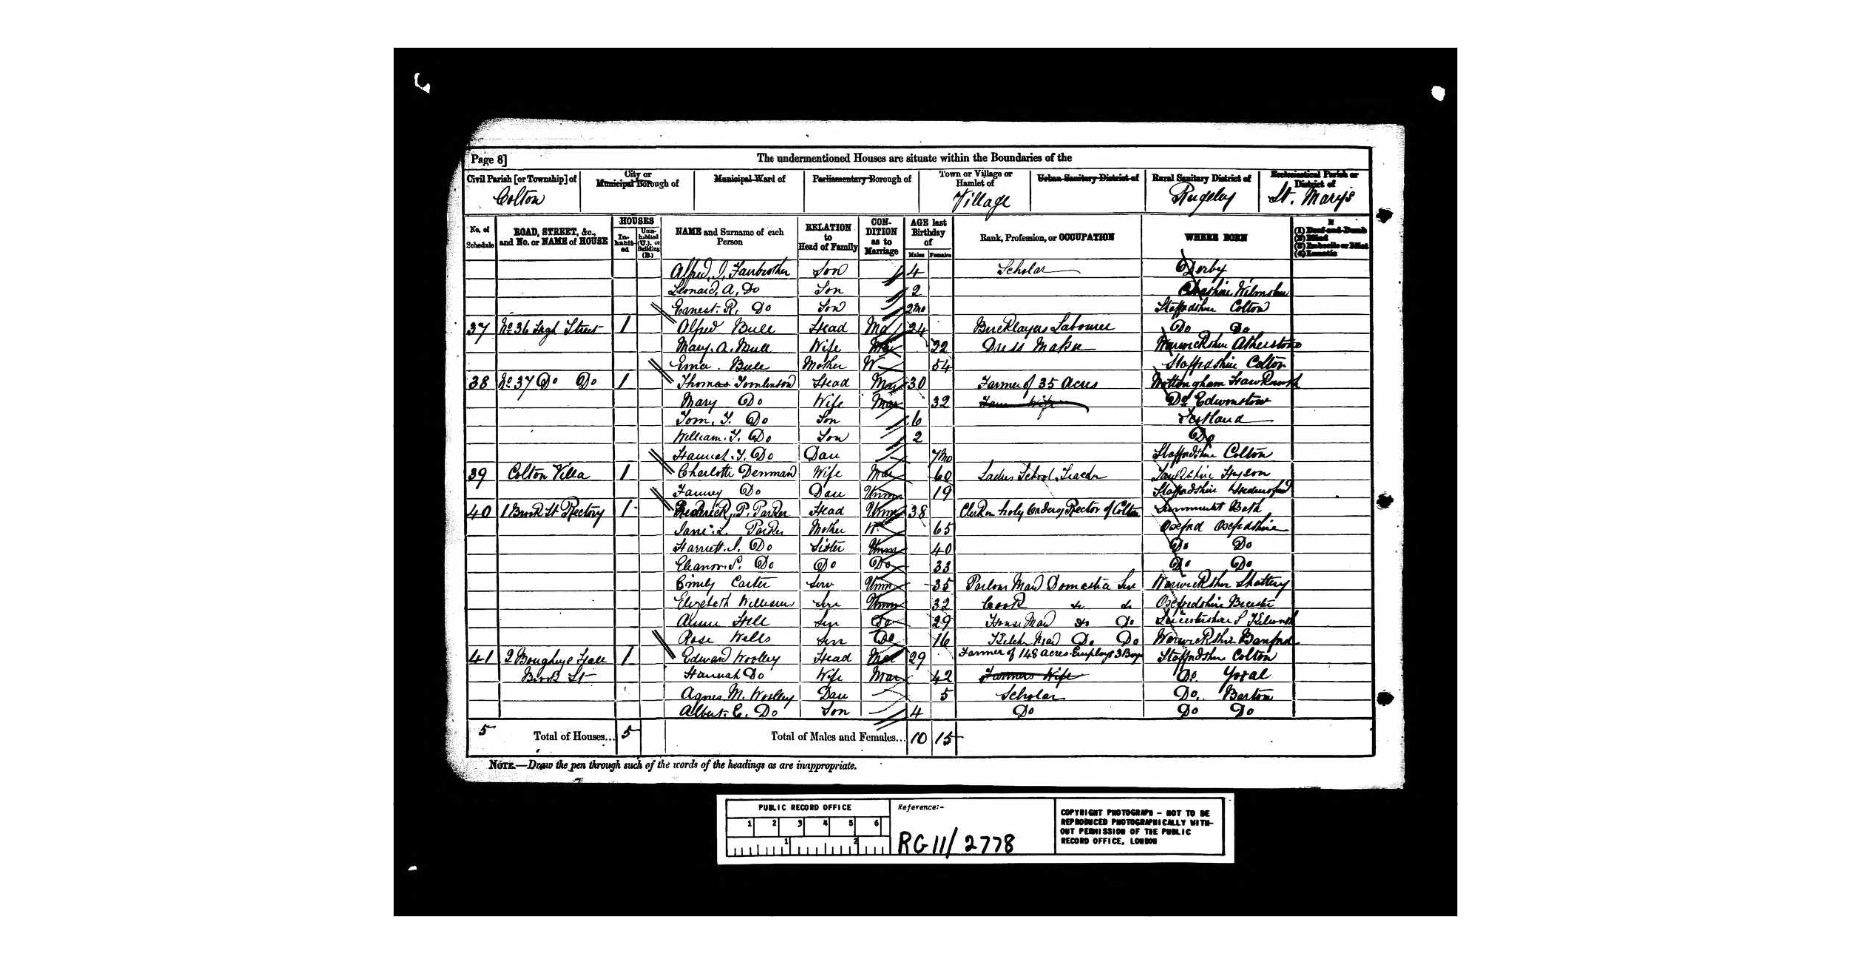 Page 8]
The undermentioned Houses are situate within the Boundaries of the
Civil Parish [or Township] of
City or Municipal Borough of
Municipal Ward of
Parliamentary Borough of
Town or Village or Hamlet of
Urban Sanitary District of
Rural Sanitary District of
Ecclesiastical Parish or District of
Colton Village Rugeley St. Mary's
No. of Schedule
ROAD, STREET, &c., and No. or NAME of HOUSE
HOUSES
Inhabited
Uninhabited (U.), or Building (B.)
NAME and Surname of each Person
RELATION to Head of Family
CONDITION as to Marriage
AGE last Birthday of
Males Females
Rank, Profession, or OCCUPATION
WHERE BORN
(1) Deaf-and-Dumb
(2) Blind
(3) Imbecile or Idiot
(4) Lunatic
Alfred. J. Fairbrother Son 4 Scholar Derby
Leonard. A. Do Son 2 Cheshire Wilmslow
Earnest. R. Do Son 2mo Staffordshire Colton
37 No 36 High Street 1 Alfred Bull Head Mar 24 Bricklayers Labourer Do Do
Mary. A. Bull Wife Mar 22 Dress Maker Warwickshire Atherstone
Bull Mother W 54 Staffordshire Colton
38 No 37 Do Do 1 Thomas Tomlinson Head Mar 30 Farmer of 35 Acres Nottingham
Mary Do Wife Mar 32 Farm Wife Do Edwinstow
Tom. T. Do Son 6 Scotland
William. T. Do Son 2 Do
Hannah. T. Do Dau 7mo Staffordshire Colton
39 Colton Villa 1 Charlotte Denman Wife Mar 60 Ladies School Teacher
Fanney Do Dau Unm 19 Staffordshire
40 1 Brook St Rectory 1 Frederick. P. Parker Head Unm 38 Clerk in holy Orders Rector of Colton Sommerset Bath
Jane. L. Parker Mother W. 65 Oxford Oxfordshire
Harriett. S. Do Sister Unm 40 Do Do
Eleanor. S. Do Do Do 33 Do Do
Emily Carter Serv Unm 35 Parlour Maid Domestic Serv Warwickshire Shottery
Elizabeth Williams Serv Unm 32 Cook do do Oxfordshire Bicester
Annie Hill Serv Do 29 House Maid Do Do Leicestershire
Rose Wells Serv Do 16 Kitchen Maid Do Do Warwickshire
41 2 Boughye Hall 1 Edward Woolley Head Mar 29 Farmer of 148 acres Employs 3 Boys Staffordshire Colton
Brook St Hannah Do Wife Mar 42 Farmers Wife Do. Yoxal
Agnes M. Woolley Dau 5 Scholar Do. Barton
Albert. E. Do Son 4 Do Do Do
5 Total of Houses... 5 Total of Males and Females... 10 15
NOTE.—Draw the pen through such of the words of the headings as are inappropriate.
PUBLIC RECORD OFFICE
1 2 3 4 5 6
1 2
Reference:-
RG 11/2778
COPYRIGHT PHOTOGRAPH - NOT TO BE
REPRODUCED PHOTOGRAPHICALLY WITH-
OUT PERMISSION OF THE PUBLIC
RECORD OFFICE, LONDON